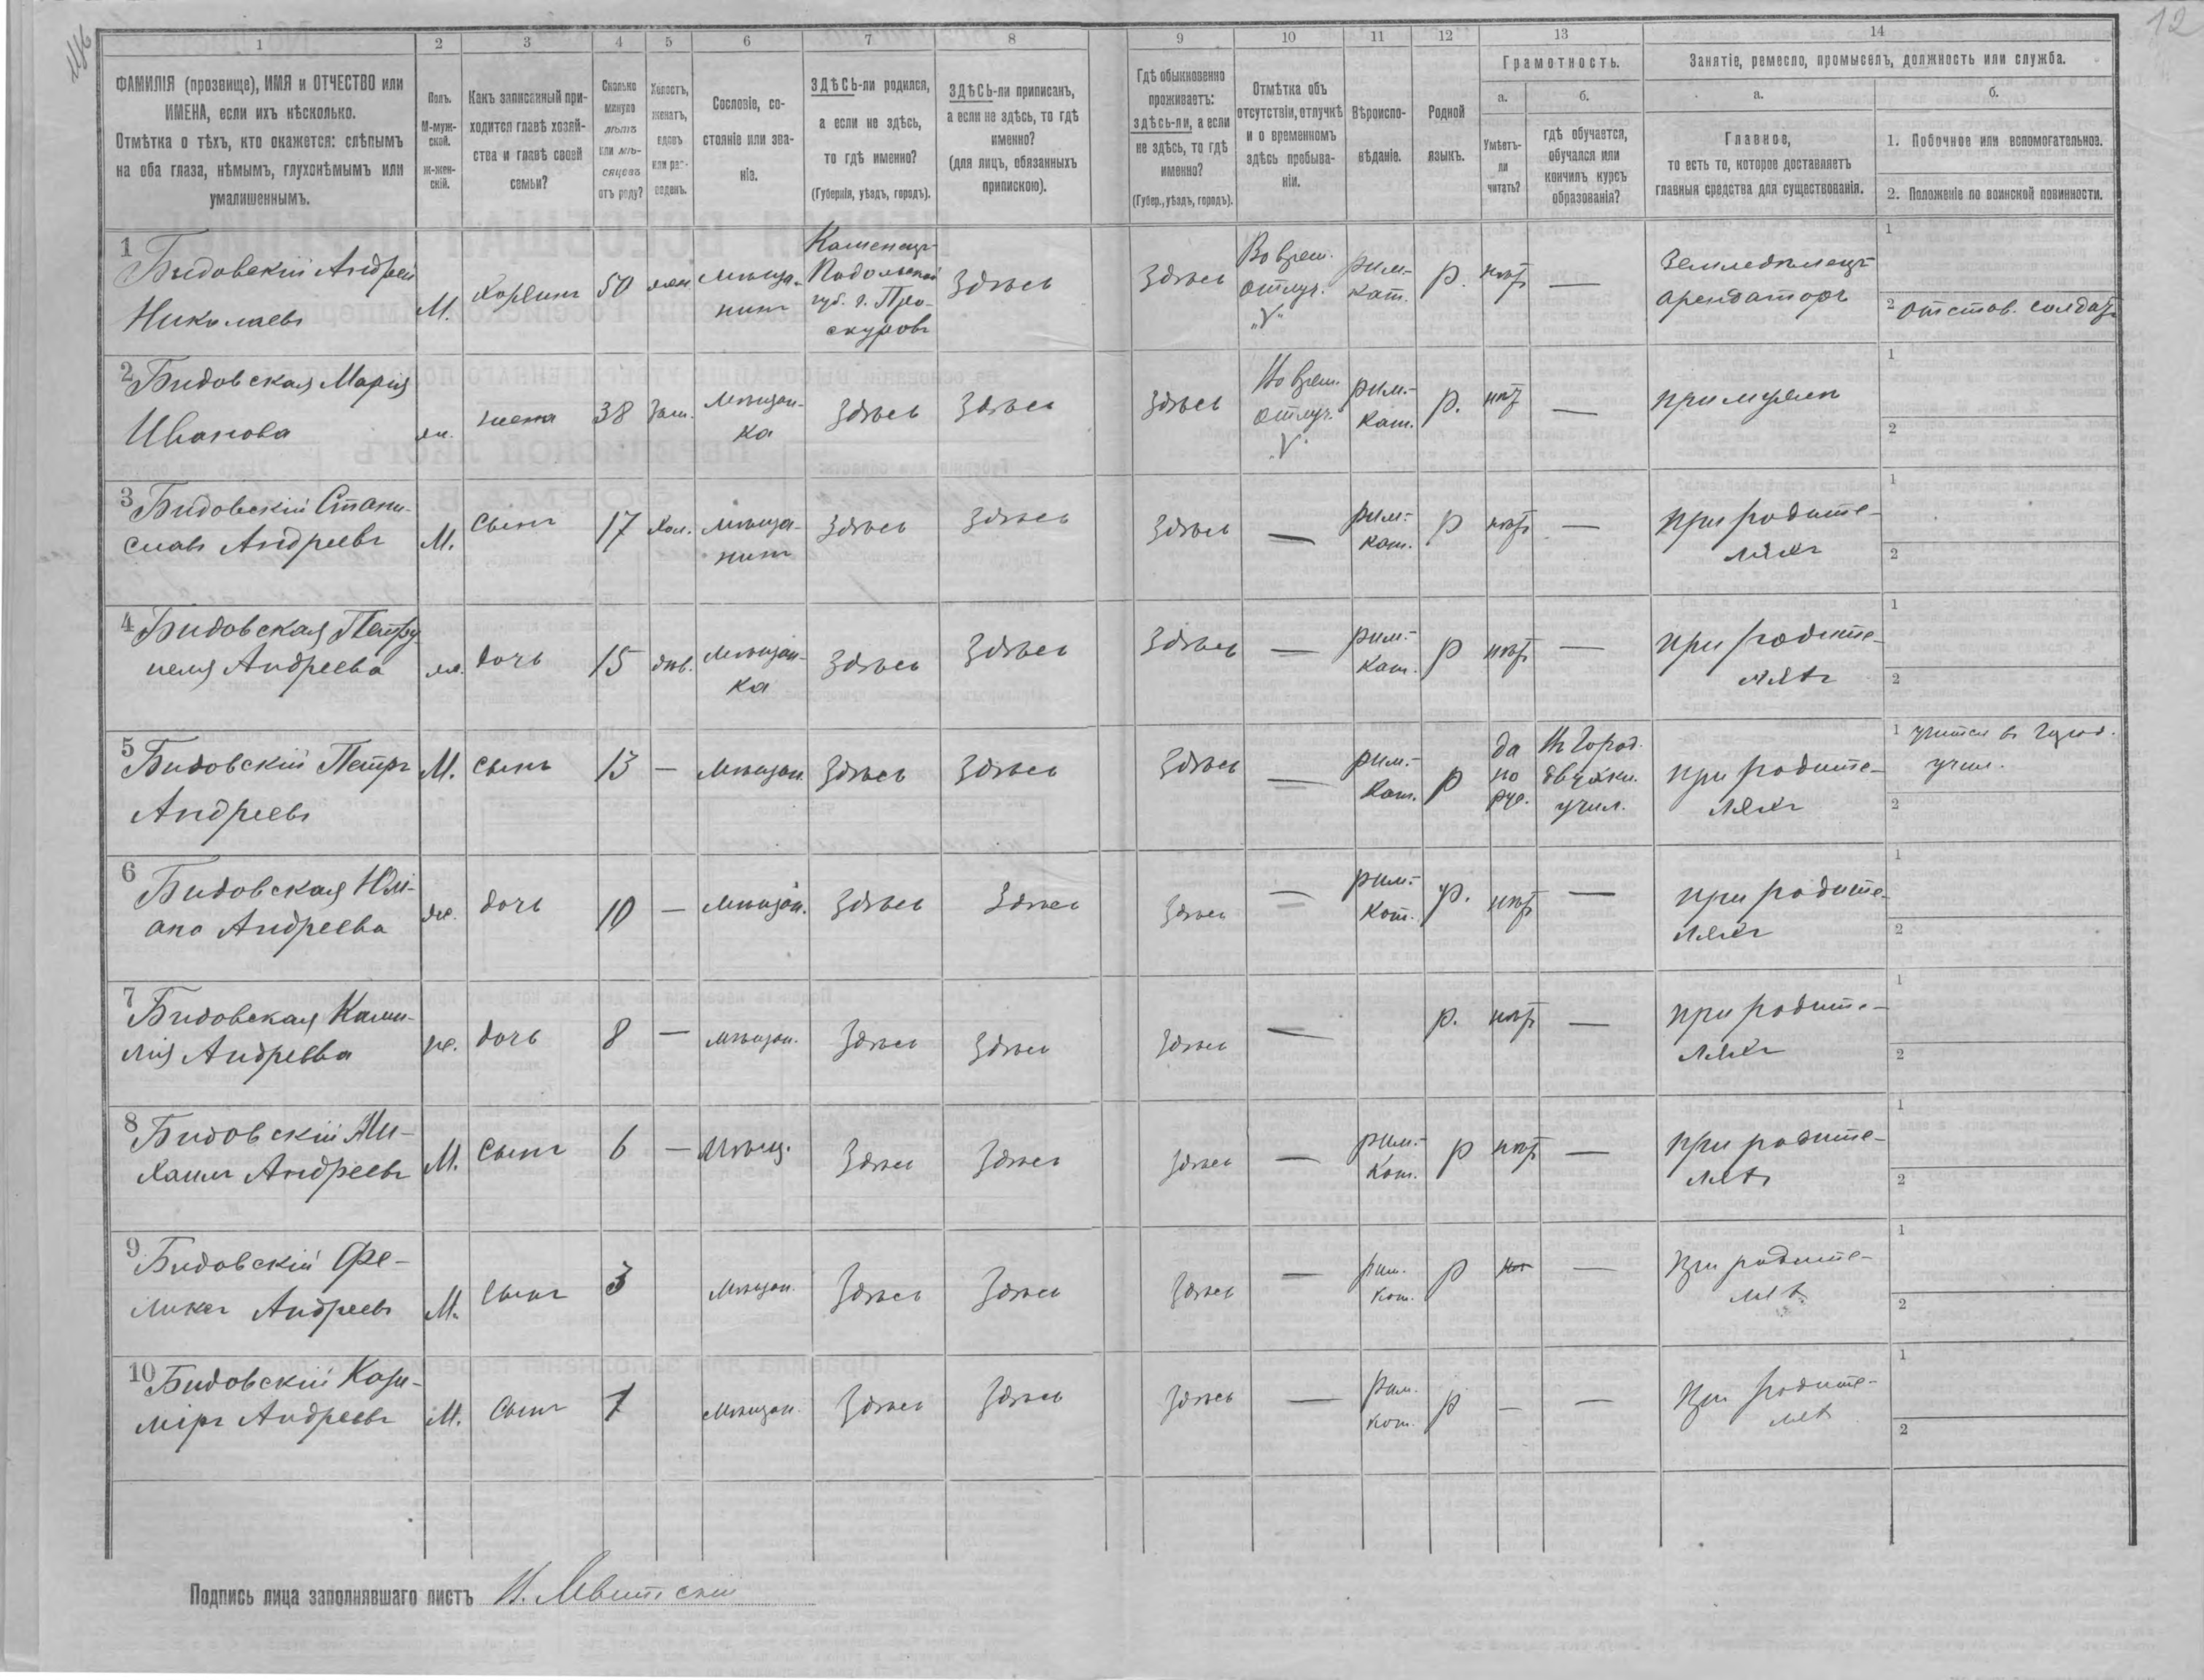 12
1
2
3
4
5
6
7
8
9
10
11
12
13
14
ФАМИЛІЯ (прозвище), ИМЯ и ОТЧЕСТВО или
ИМЕНА, если ихъ нѣсколько.
Отмѣтка о тѣхъ, кто окажется: слѣпымъ
на оба глаза, нѣмымъ, глухонѣмымъ или
умалишеннымъ.
Полъ.
М-муж-
ской.
Ж-жен-
скій.
Какъ записанный при-
ходится главѣ хозяй-
ства и главѣ своей
семьи?
Сколько
минуло
лѣтъ
или мѣ-
сяцевъ
отъ роду?
Холостъ,
женатъ,
вдовъ
или раз-
веденъ.
Сословіе, со-
стояніе или зва-
ніе.
ЗДѢСЬ-ли родился,
а если не здѣсь,
то гдѣ именно?
(Губернія, уѣздъ, городъ).
ЗДѢСЬ-ли приписанъ,
а если не здѣсь, то гдѣ
именно?
(для лицъ, обязанныхъ
припискою).
Гдѣ обыкновенно
проживаетъ:
здѣсь-ли, а если
не здѣсь, то гдѣ
именно?
(Губер., уѣздъ, городъ).
Отмѣтка объ
отсутствіи, отлучкѣ
и о временномъ
здѣсь пребыва-
ніи.
Вѣроиспо-
вѣданіе.
Родной
языкъ.
Грамотность.
а.
Умѣетъ-
ли
читать?
б.
гдѣ обучается,
обучался или
кончилъ курсъ
образованія?
Занятіе, ремесло, промыселъ, должность или служба.
а.
Главное,
то есть то, которое доставляетъ
главныя средства для существованія.
б.
1. Побочное или вспомогательное.
2. Положеніе по воинской повинности.
1
Бидовскій Андрей
Николаевъ
М.
Хозяинъ
50
жен.
Мѣща-
нинъ
Каменец-
Подольской
губ. г. Про-
скуровъ
Здѣсь
Здѣсь
Во врем.
отлуч.
„V“
рим-
кат.
р.
нѣтъ
—
Земледѣлецъ
арендаторъ
1
2 отстав. солдатъ
2
Бидовская Марія
Иванова
ж.
жена
38
зам.
Мѣщан-
ка
Здѣсь
Здѣсь
Здѣсь
Во врем.
отлуч.
V
рим.-
кат.
р.
нѣт
—
при мужѣ
1
2
3
Бидовскій Стани-
славъ Андреевъ
М.
Сынъ
17
хол.
Мѣща-
нинъ
Здѣсь
Здѣсь
Здѣсь
—
рим.-
кат.
р
нѣтъ
—
при родите-
ляхъ
1
2
4
Бидовская Петру
неля Андреева
ж.
дочь
15
дѣв.
Мѣщан-
ка
Здѣсь
Здѣсь
Здѣсь
—
рим.-
кат.
р
нѣтъ
—
при родите-
ляхъ
1
2
5
Бидовскій Петръ
Андреевъ
М.
Сынъ
13
—
Мѣщан
Здѣсь
Здѣсь
Здѣсь
—
рим.-
кат.
р
да
по
рус.
Въ Город.
двухкл.
учил.
при родите-
ляхъ
1 учится въ Город.
учил.
2
6
Бидовская Юлі-
ана Андреева
ж.
дочь
10
—
Мѣщан.
Здѣсь
Здѣсь
Здѣсь
—
рим.-
кат.
р.
нѣтъ
—
при родите-
ляхъ
1
2
7
Бидовская Ками-
лія Андреева
ж.
дочь
8
—
мѣщан.
Здѣсь
Здѣсь
Здѣсь
—
р.
нѣтъ
—
при родите-
ляхъ
1
2
8
Бидовскій Ми-
хаилъ Андреевъ
М.
Сынъ
6
—
Мѣщ.
Здѣсь
Здѣсь
Здѣсь
—
рим.-
кат.
р
нѣтъ
—
при родите-
ляхъ
1
2
9
Бидовскій Фе-
ликсъ Андреевъ
М.
Сынъ
3
Мѣщан.
Здѣсь
Здѣсь
Здѣсь
—
рим.
кат.
р
—
При родите-
лях
1
2
10
Бидовскій Кази-
міръ Андреевъ
М.
Сынъ
1
Мѣщан.
Здѣсь
Здѣсь
Здѣсь
—
рим.
кат.
р
—
—
При родите-
лях
1
2
Подпись лица заполнявшаго листъ